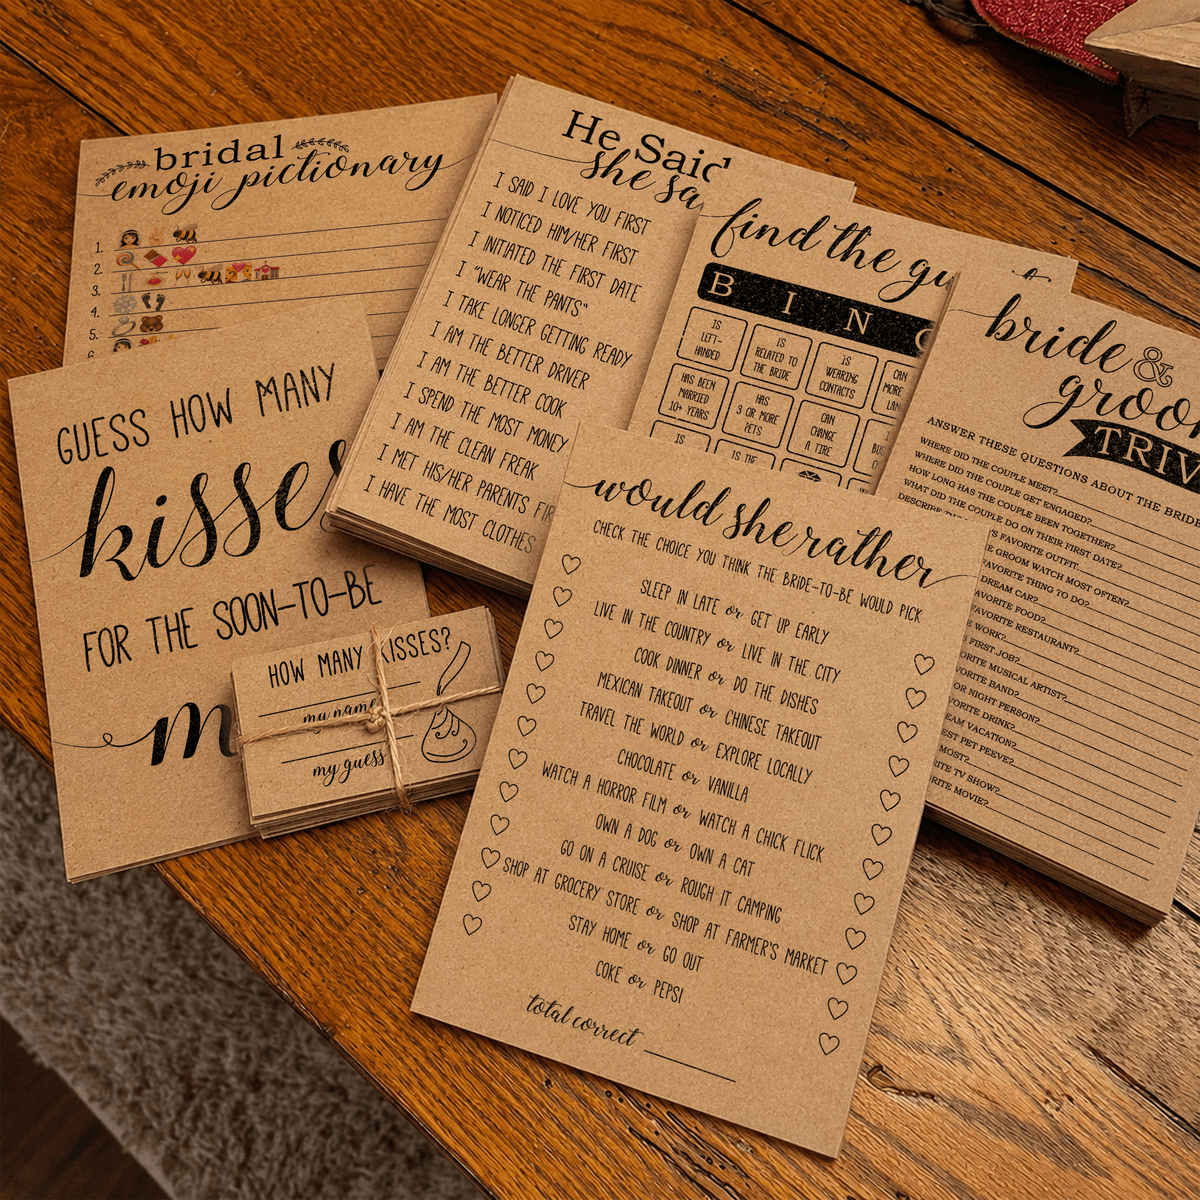 bridal
emoji pictionary
1.
2.
3.
4.
5.
6.
He Said
she sa
I SAID I LOVE YOU FIRST
I NOTICED HIM/HER FIRST
I INITIATED THE FIRST DATE
I "WEAR THE PANTS"
I TAKE LONGER GETTING READY
I AM THE BETTER DRIVER
I AM THE BETTER COOK
I SPEND THE MOST MONEY
I AM THE CLEAN FREAK
I MET HIS/HER PARENTS FIR
I HAVE THE MOST CLOTHES
find the gu
B I N G
IS LEFT-HANDED
IS RELATED TO THE BRIDE
IS WEARING CONTACTS
CAN MORE LAN
HAS BEEN MARRIED 10+ YEARS
HAS 3 OR MORE PETS
CAN CHANGE A TIRE
IS
IS THE
bride &
groo
TRIV
ANSWER THESE QUESTIONS ABOUT THE BRIDE
WHERE DID THE COUPLE MEET?
WHERE DID THE COUPLE GET ENGAGED?
HOW LONG HAS THE COUPLE BEEN TOGETHER?
WHAT DID THE COUPLE DO ON THEIR FIRST DATE?
DESCRIBE 'S FAVORITE OUTFIT
E GROOM WATCH MOST OFTEN?
FAVORITE THING TO DO?
DREAM CAR?
FAVORITE FOOD?
FAVORITE RESTAURANT?
E WORK?
FIRST JOB?
ORITE MUSICAL ARTIST?
ORITE BAND?
OR NIGHT PERSON?
ORITE DRINK?
EAM VACATION?
EST PET PEEVE?
MOST?
RITE TV SHOW?
RITE MOVIE?
GUESS HOW MANY
kisses
FOR THE SOON-TO-BE
m
HOW MANY KISSES?
my name
my guess
would she rather
CHECK THE CHOICE YOU THINK THE BRIDE-TO-BE WOULD PICK
SLEEP IN LATE or GET UP EARLY
LIVE IN THE COUNTRY or LIVE IN THE CITY
COOK DINNER or DO THE DISHES
MEXICAN TAKEOUT or CHINESE TAKEOUT
TRAVEL THE WORLD or EXPLORE LOCALLY
CHOCOLATE or VANILLA
WATCH A HORROR FILM or WATCH A CHICK FLICK
OWN A DOG or OWN A CAT
GO ON A CRUISE or ROUGH IT CAMPING
SHOP AT GROCERY STORE or SHOP AT FARMER'S MARKET
STAY HOME or GO OUT
COKE or PEPSI
total correct